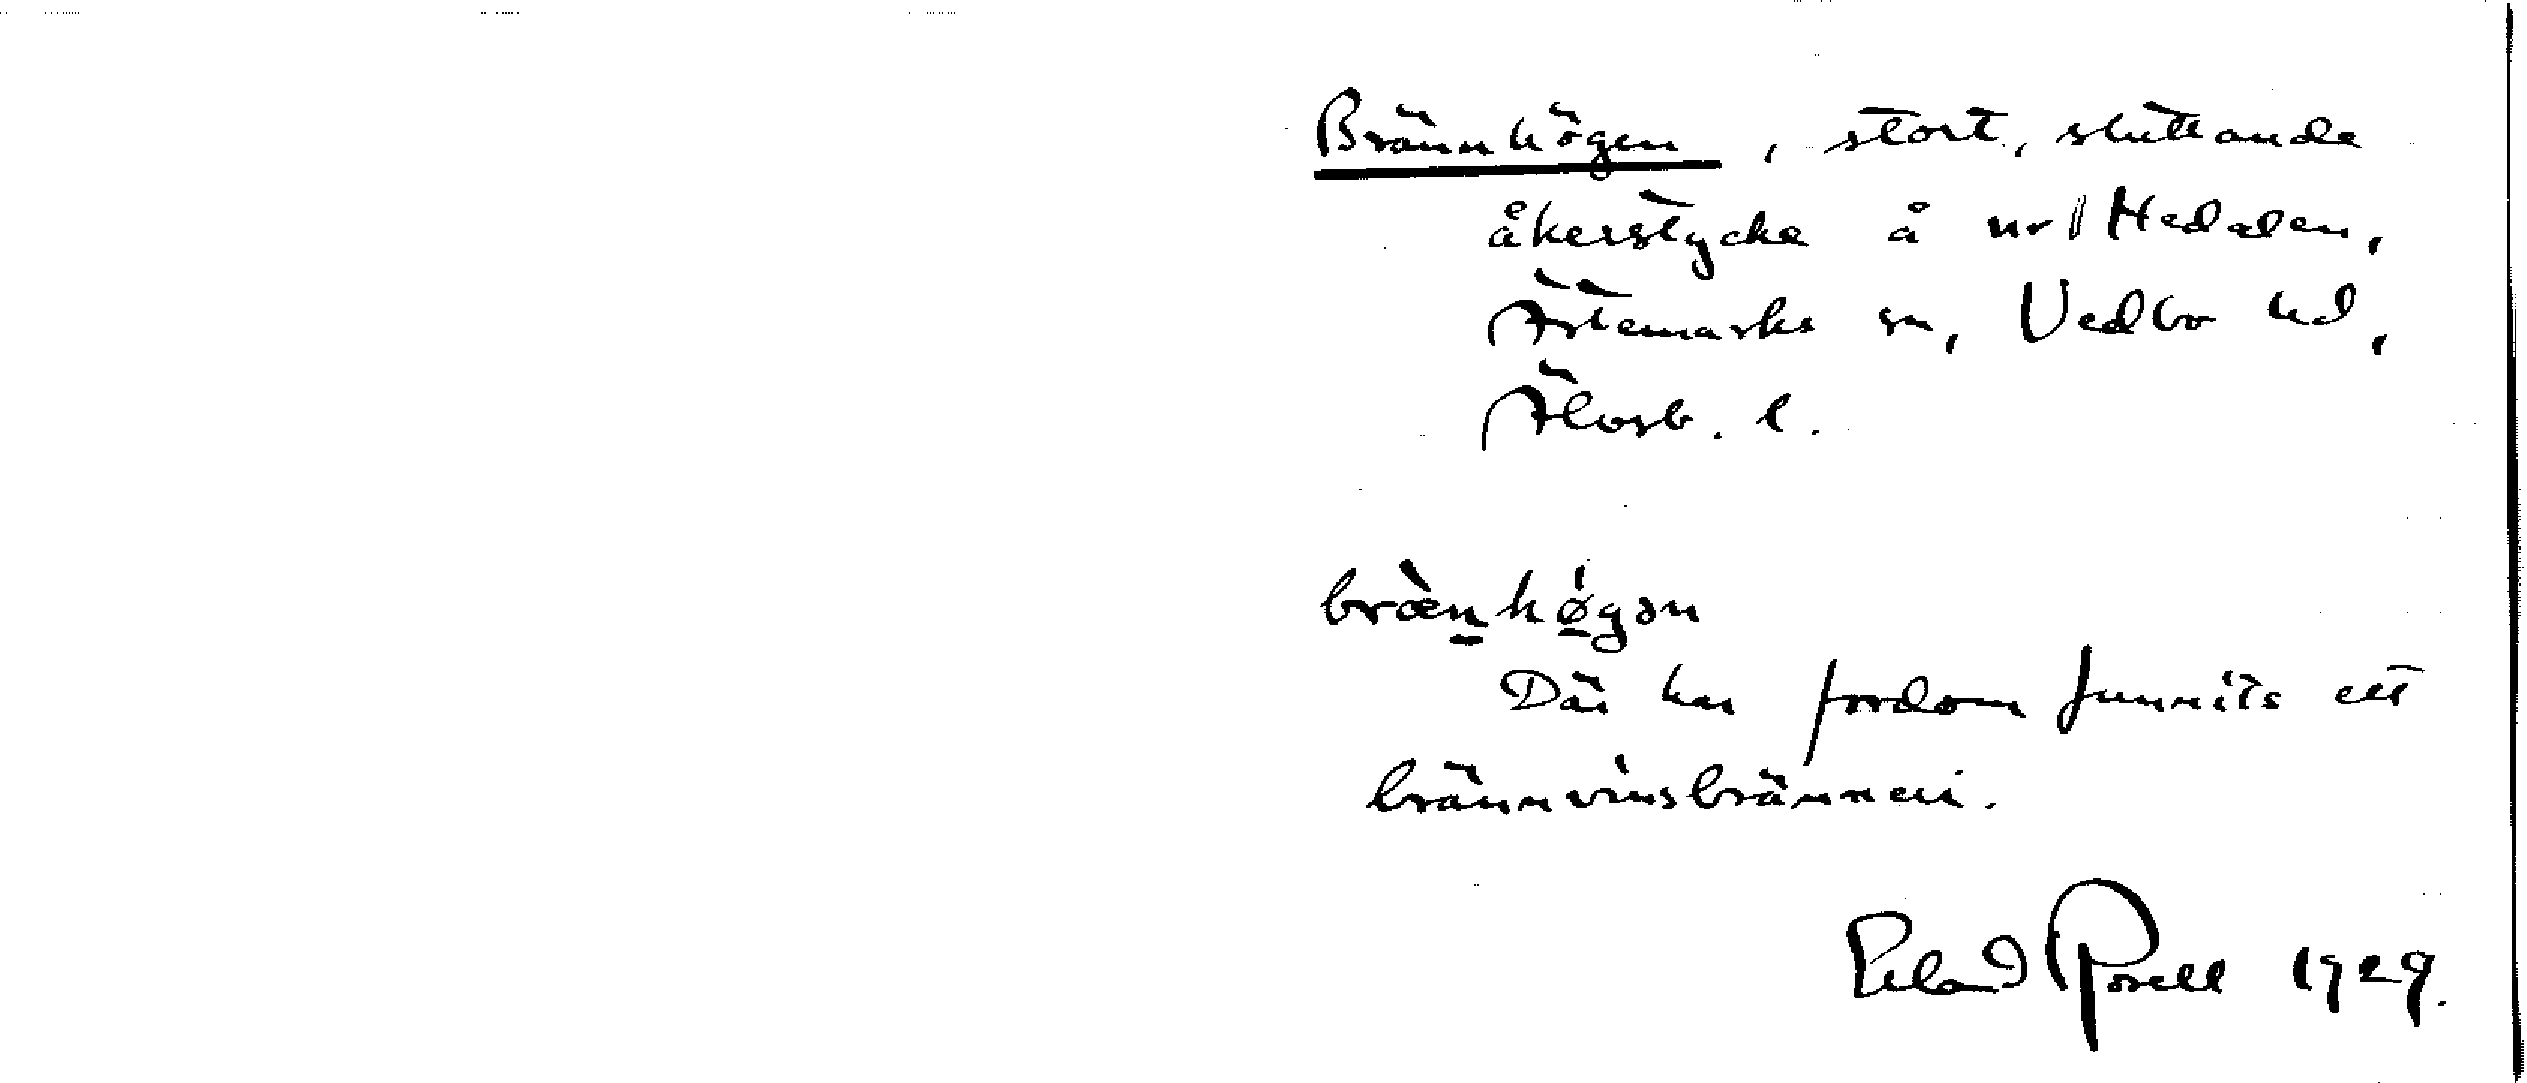 Brännhögen, stort, sluttande
åkerstycke å nr 1 Hedalen,
Ärtemarks sn, Vedbo hd,
Älvsb. l.
bræ̀n̲hǿ̲gən
Där har fordom funnits ett
brännvinsbränneri.
Erland Rosell 1929.